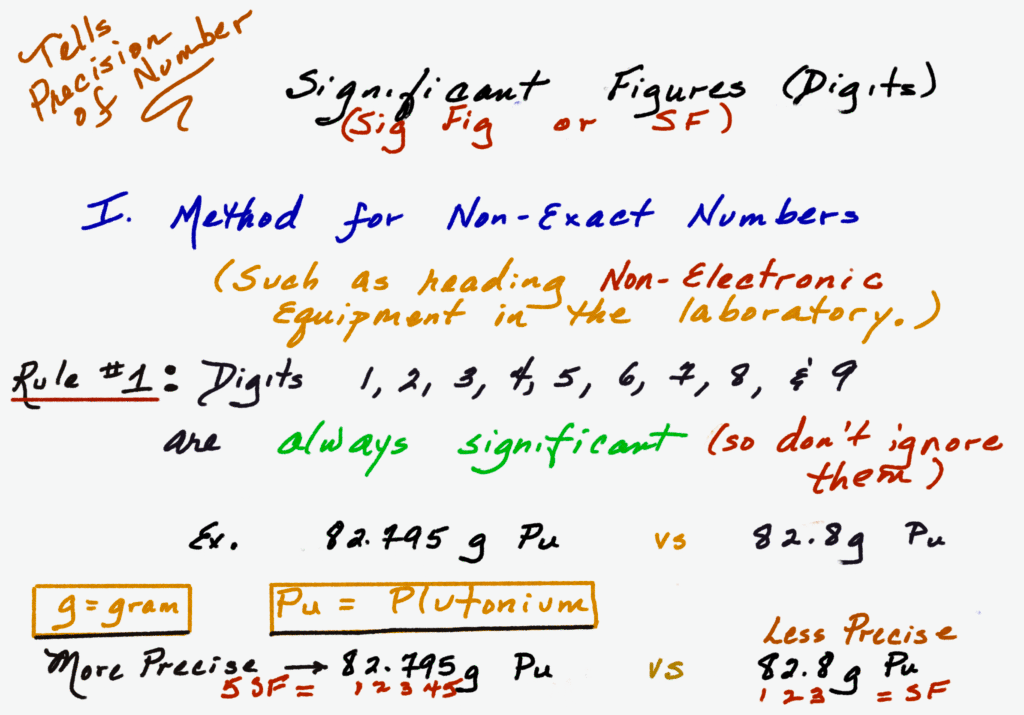 Tells
Precision
of Number
Significant Figures (Digits)
(Sig Fig or SF)
I. Method for Non-Exact Numbers
(Such as reading Non-Electronic
Equipment in the laboratory.)
Rule #1: Digits 1, 2, 3, 4, 5, 6, 7, 8, & 9
are always significant (so don't ignore
them)
Ex. 82.795 g Pu vs 82.8g Pu
g = gram
Pu = Plutonium
Less Precise
More Precise → 82.795g Pu vs 82.8g Pu
5 SF = 1 2 3 4 5 1 2 3 = SF